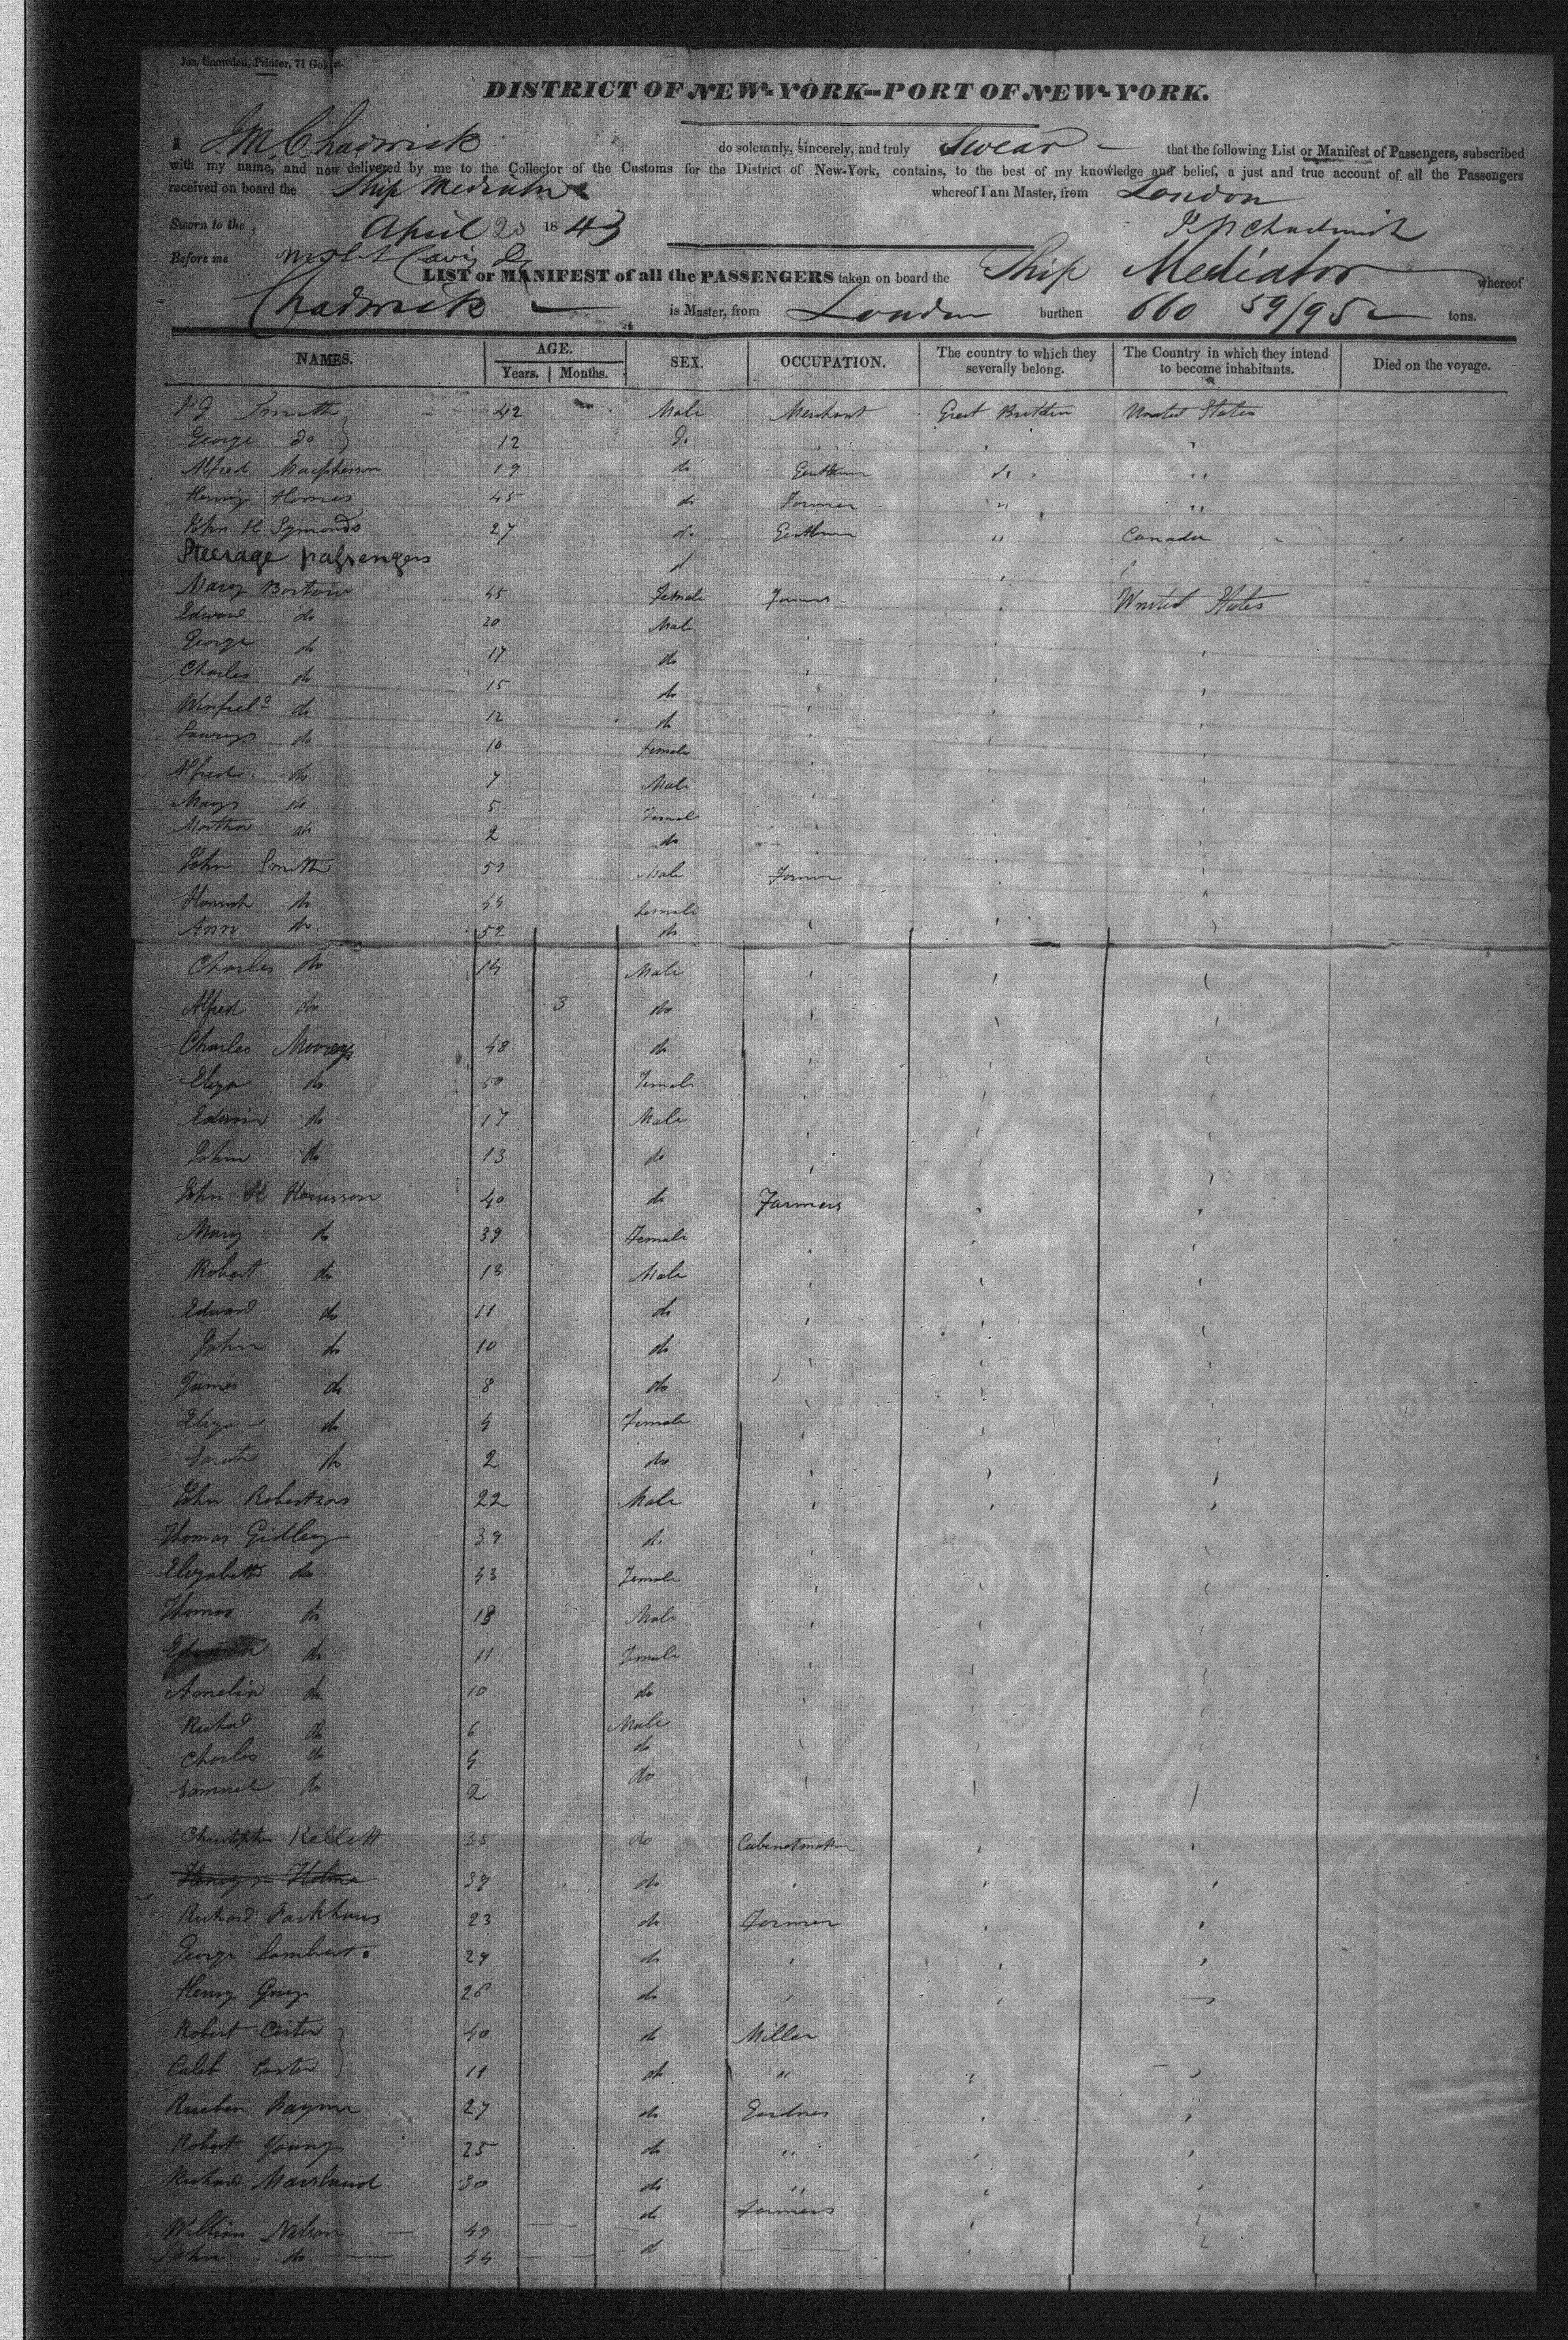 Jos. Snowden, Printer, 71 Gold st.
DISTRICT OF NEW-YORK--PORT OF NEW-YORK.
I J M Chadwick do solemnly, sincerely, and truly Swear that the following List or Manifest of Passengers, subscribed
with my name, and now delivered by me to the Collector of the Customs for the District of New-York, contains, to the best of my knowledge and belief, a just and true account of all the Passengers
received on board the Ship Mediator whereof I am Master, from London
Sworn to the April 20 1843 J M Chadwick
Before me
LIST or MANIFEST of all the PASSENGERS taken on board the Ship Mediator whereof
Chadwick is Master, from London burthen 660 59/95 tons.
NAMES. AGE. Years. Months. SEX. OCCUPATION. The country to which they severally belong. The Country in which they intend to become inhabitants. Died on the voyage.
Smith 42 Male Merchant Great Britain United States
George do 12 do
Alfred Macpherson 19 do Gentleman do "
Henry Homes 45 do Farmer " "
John H Symonds 27 do Gentleman " Canada
Steerage passengers
Mary 45 Female Farmers United States
Edward do 20 Male
George do 17 do
Charles do 15 do
Winfield do 12 do
do 10 female
Alfred do 7 Male
Mary do 5 Female
Martha do 2 do
John Smith Male Farmer
Hannah do 44 female
Ann do 52 do
Charles do 14 Male
Alfred do 3 do
Charles 48 do
Eliza do 50 Female
Edwin do 17 Male
John do 13 do
John H Harrisson 40 do Farmers
Mary do 39 Female
Robert do 13 Male
Edward do 11 do
John do 10 do
James do 8 do
Eliza do 4 Female
Sarah do 2 do
John Robertson 22 Male
Thomas Gidley 39 do
Elizabeth do 43 Female
Thomas do 18 Male
do 11 Female
Amelia do 10 do
Richad do 6 Male
Charles do 4 do
Samuel do 2 do
Christopher Kellett 35 do Cabinetmaker
Henry Holme 39 do
Richard 23 do Farmer
George Lambert 29 do
Henry Guy 26 do
Robert Carter 40 do Miller
Caleb Carter 11 do "
Rueben Payne 27 do Gardner
Robert Young 25 do "
Richard 30 do "
William Nelson 49 do farmers
John do 44 do